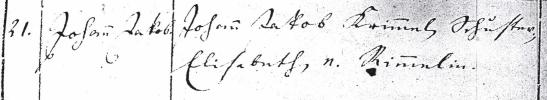 21. Johann Jakob. Johann Jakob Krimmel, Schuster,
Elisabeth, n. Rimmelin.